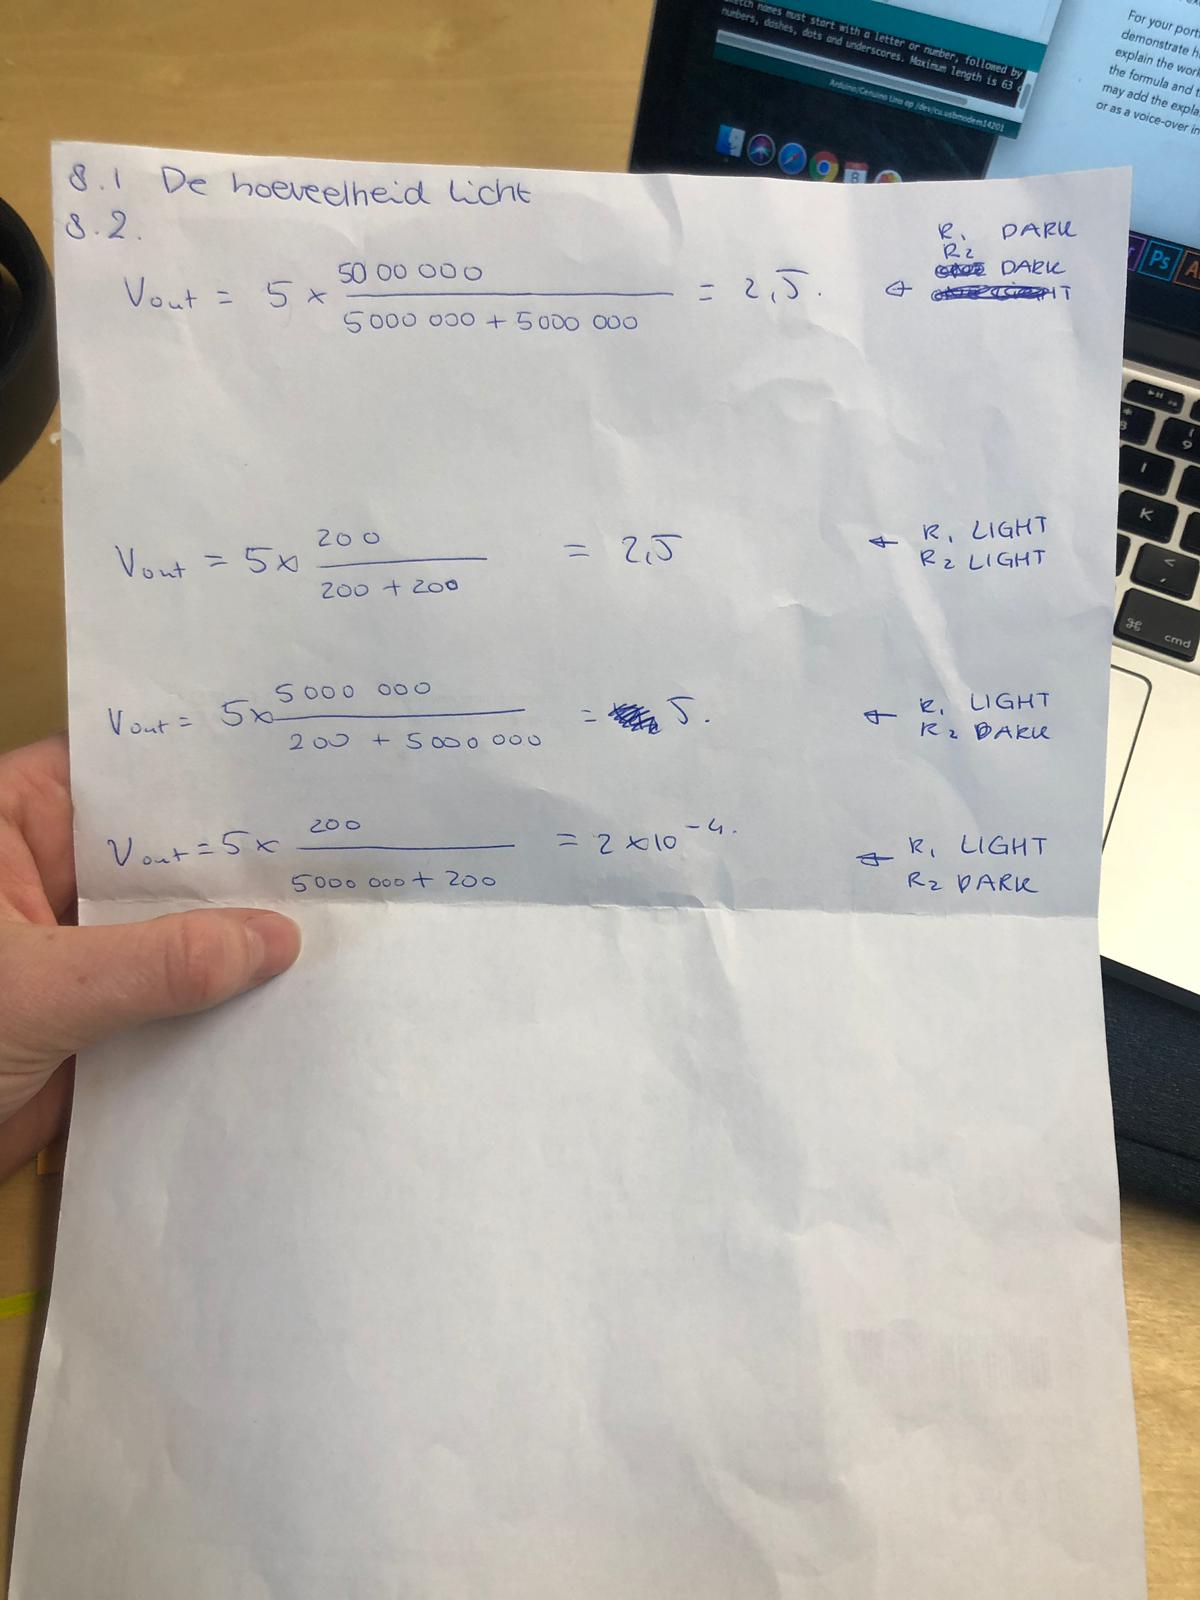 sketch names must start with a letter or number, followed by
numbers, dashes, dots and underscores. Maximum length is 63
Arduino/Genuino Uno op /dev/cu.usbmodem14201
For your port
demonstrate h
explain the work
the formula and t
may add the expla
or as a voice-over in
8.1 De hoeveelheid licht
8.2.
Vout = 5 x 5000 000 / 5000 000 + 5000 000 = 2,5. ← R1 DARK
R2 DARK
Vout = 5x 200 / 200 + 200 = 2,5 ← R1 LIGHT
R2 LIGHT
Vout = 5x 5000 000 / 200 + 5000 000 = 5. ← R1 LIGHT
R2 DARK
Vout = 5x 200 / 5000 000 + 200 = 2 x 10⁻⁴. ← R1 LIGHT
R2 DARK
Ps
K
cmd